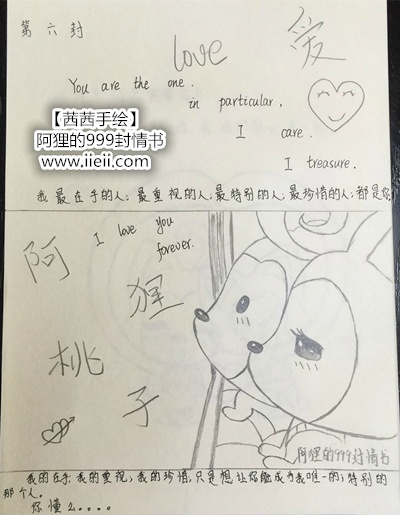 第六封
love 爱
You are the one.
in particular,
I care.
I treasure.
【茜茜手绘】
阿狸的999封情书
www.iieii.com
我最在乎的人;最重视的人;最特别的人;最珍惜的人;都是你
I love you
forever.
阿狸
桃子
阿狸的999封情书
我的在乎,我的重视,我的珍惜,只是想让你能成为我唯一的;特别的
那个人。
你懂么....